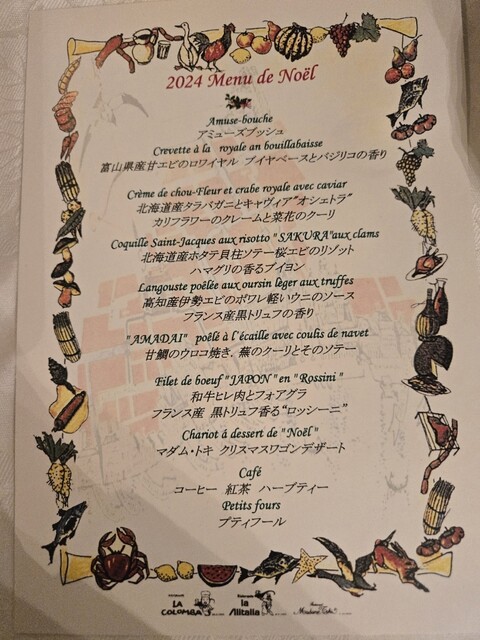 2024 Menu de Noël
Amuse-bouche
アミューズブッシュ
Crevette à la royale an bouillabaisse
富山県産甘エビのロワイヤル ブイヤベースとバジリコの香り
Crème de chou-Fleur et crabe royale avec caviar
北海道産タラバガニとキャヴィア"オシェトラ"
カリフラワーのクレームと菜花のクーリ
Coquille Saint-Jacques aux risotto "SAKURA"aux clams
北海道産ホタテ貝柱ソテー桜エビのリゾット
ハマグリの香るブイヨン
Langouste poêlée aux oursin lèger aux truffes
高知産伊勢エビのポワレ軽いウニのソース
フランス産黒トリュフの香り
"AMADAI" poêlé à l'écaille avec coulis de navet
甘鯛のウロコ焼き、蕪のクーリとそのソテー
Filet de boeuf "JAPON" en "Rossini"
和牛ヒレ肉とフォアグラ
フランス産 黒トリュフ香る"ロッシーニ"
Chariot á dessert de "Noël"
マダム・トキ クリスマスワゴンデザート
Café
コーヒー 紅茶 ハーブティー
Petits fours
プティフール
LA COLOMBA
la Alitalia
Madame Toki